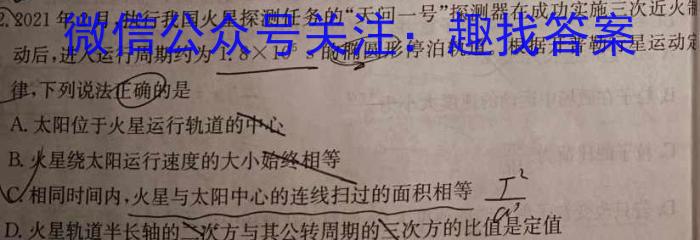 2.2021年 月,执行我国火星探测任务的“天问一号”探测器在成功实施三次近火制
微信公众号关注：趣找答案
动后,进入运行周期约为1.8×10⁵ s的椭圆形停泊轨 根据 普勒 星运动定
律,下列说法正确的是
A. 太阳位于火星运行轨道的中心
B. 火星绕太阳运行速度的大小始终相等
C. 相同时间内,火星与太阳中心的连线扫过的面积相等
D. 火星轨道半长轴的二次方与其公转周期的三次方的比值是定值